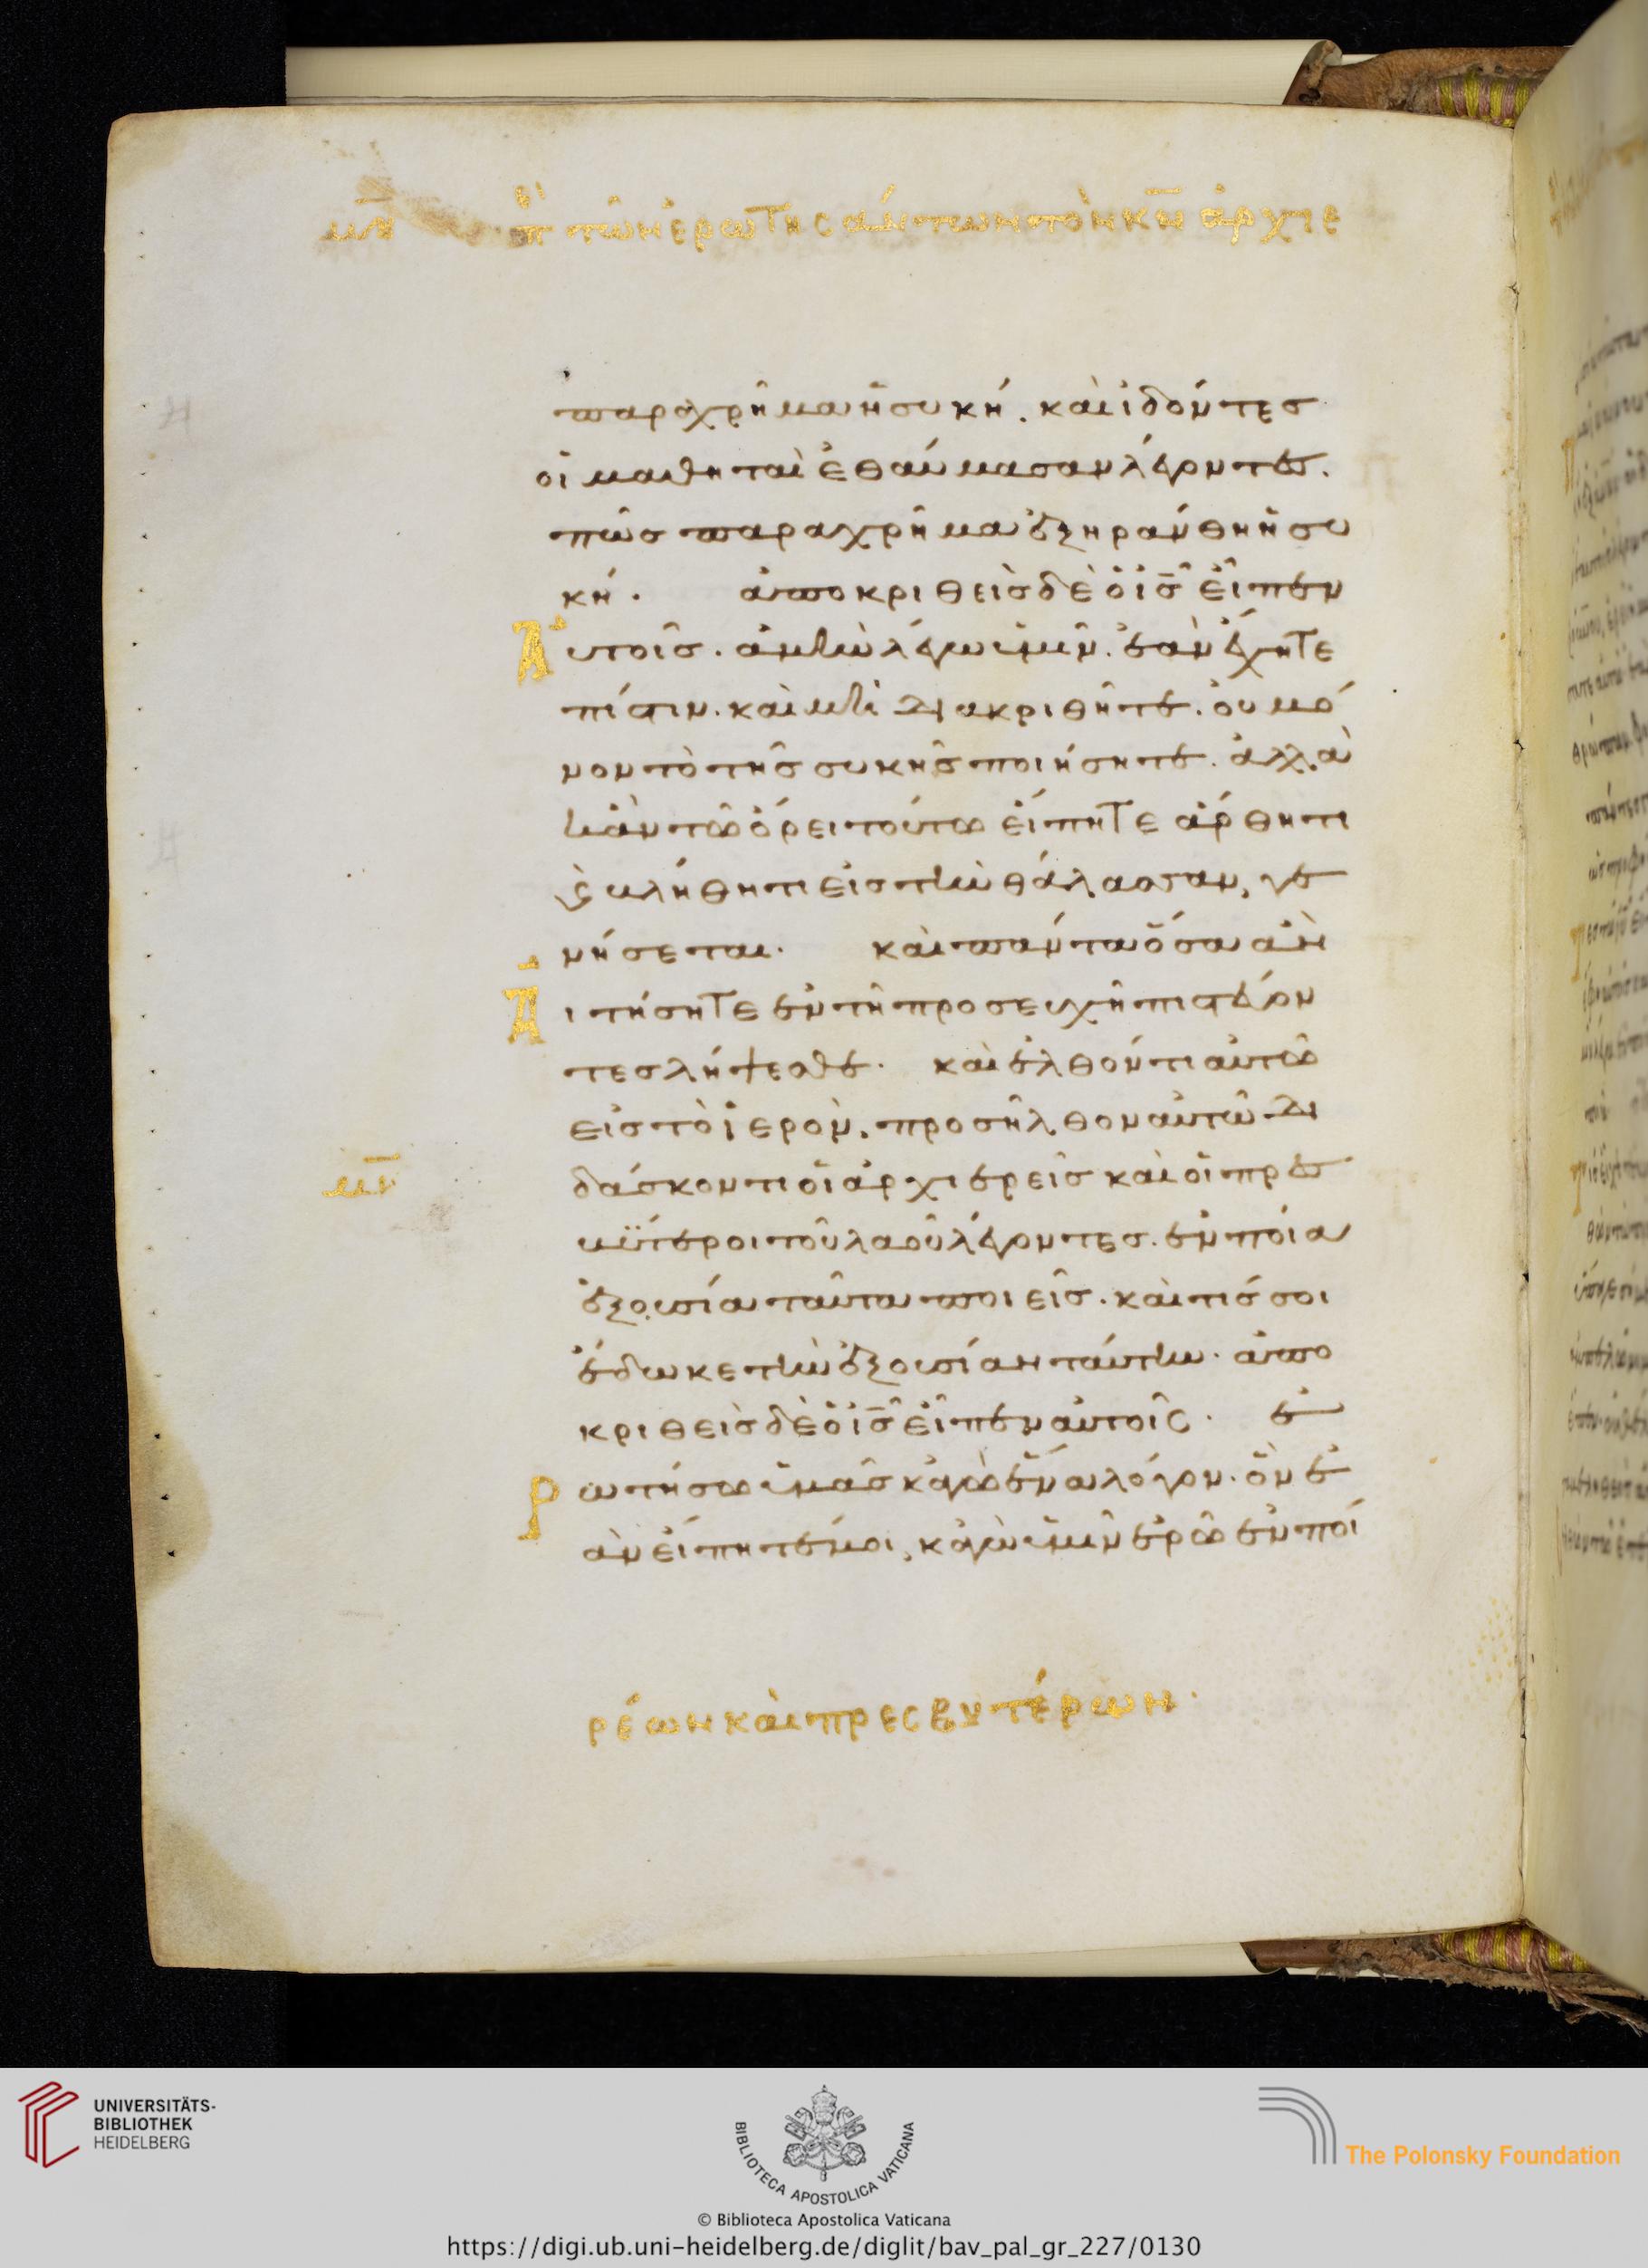 μη π̅ε̅ρ̅ὶ τῶν ἐρωτησάντων τὸν κ̅ν̅ ἀρχιε
παραχρῆμα ἡ συκή. καὶ ἰδόντες
οἱ μαθηταὶ ἐθαύμασαν λέγοντες.
πῶς παραχρῆμα ἐξηράνθη ἡ συ
κή. ἀποκριθεὶς δὲ ὁ ι̅ς̅ εἶπεν
Αὐτοῖς. ἀμὴν λέγω ὑμῖν. ἐὰν ἔχητε
πίστιν. καὶ μὴ διακριθῆτε. οὐ μό
νον τὸ τῆς συκῆς ποιήσητε. ἀλλὰ
κἂν τῶ ὄρει τούτω εἴπητε ἄρθητι
καὶ βλήθητι εἰς τὴν θάλασσαν, γε
νήσεται. καὶ πάντα ὅσα ἂν
Αἰτήσητε ἐν τῆ προσευχῆ πιστεύον
τες λήψεσθε. καὶ ἐλθόντι αὐτῶ
εἰς τὸ ἱερὸν, προσῆλθον αὐτῶ δι
μθ
δάσκοντι οἱ ἀρχιερεῖς καὶ οἱ πρεσ
βύτεροι τοῦ λαοῦ λέγοντες. ἐν ποία
ἐξουσία ταῦτα ποιεῖς. καὶ τίς σοι
ἔδωκε τὴν ἐξουσίαν ταύτην. ἀπο
κριθεὶς δὲ ὁ ι̅ς̅ εἶπεν αὐτοῖς. ἐ
Ρωτήσω ὑμᾶς κἀγὼ ἕνα λόγον. ὃν ἐ
ὰν εἴπητέ μοι, κἀγὼ ὑμῖν ἐρῶ ἐν ποί
ρέων καὶ πρεσβυτέρων.
UNIVERSITÄTS-
BIBLIOTHEK
HEIDELBERG
BIBLIOTECA APOSTOLICA VATICANA
The Polonsky Foundation
© Biblioteca Apostolica Vaticana
https://digi.ub.uni-heidelberg.de/diglit/bav_pal_gr_227/0130